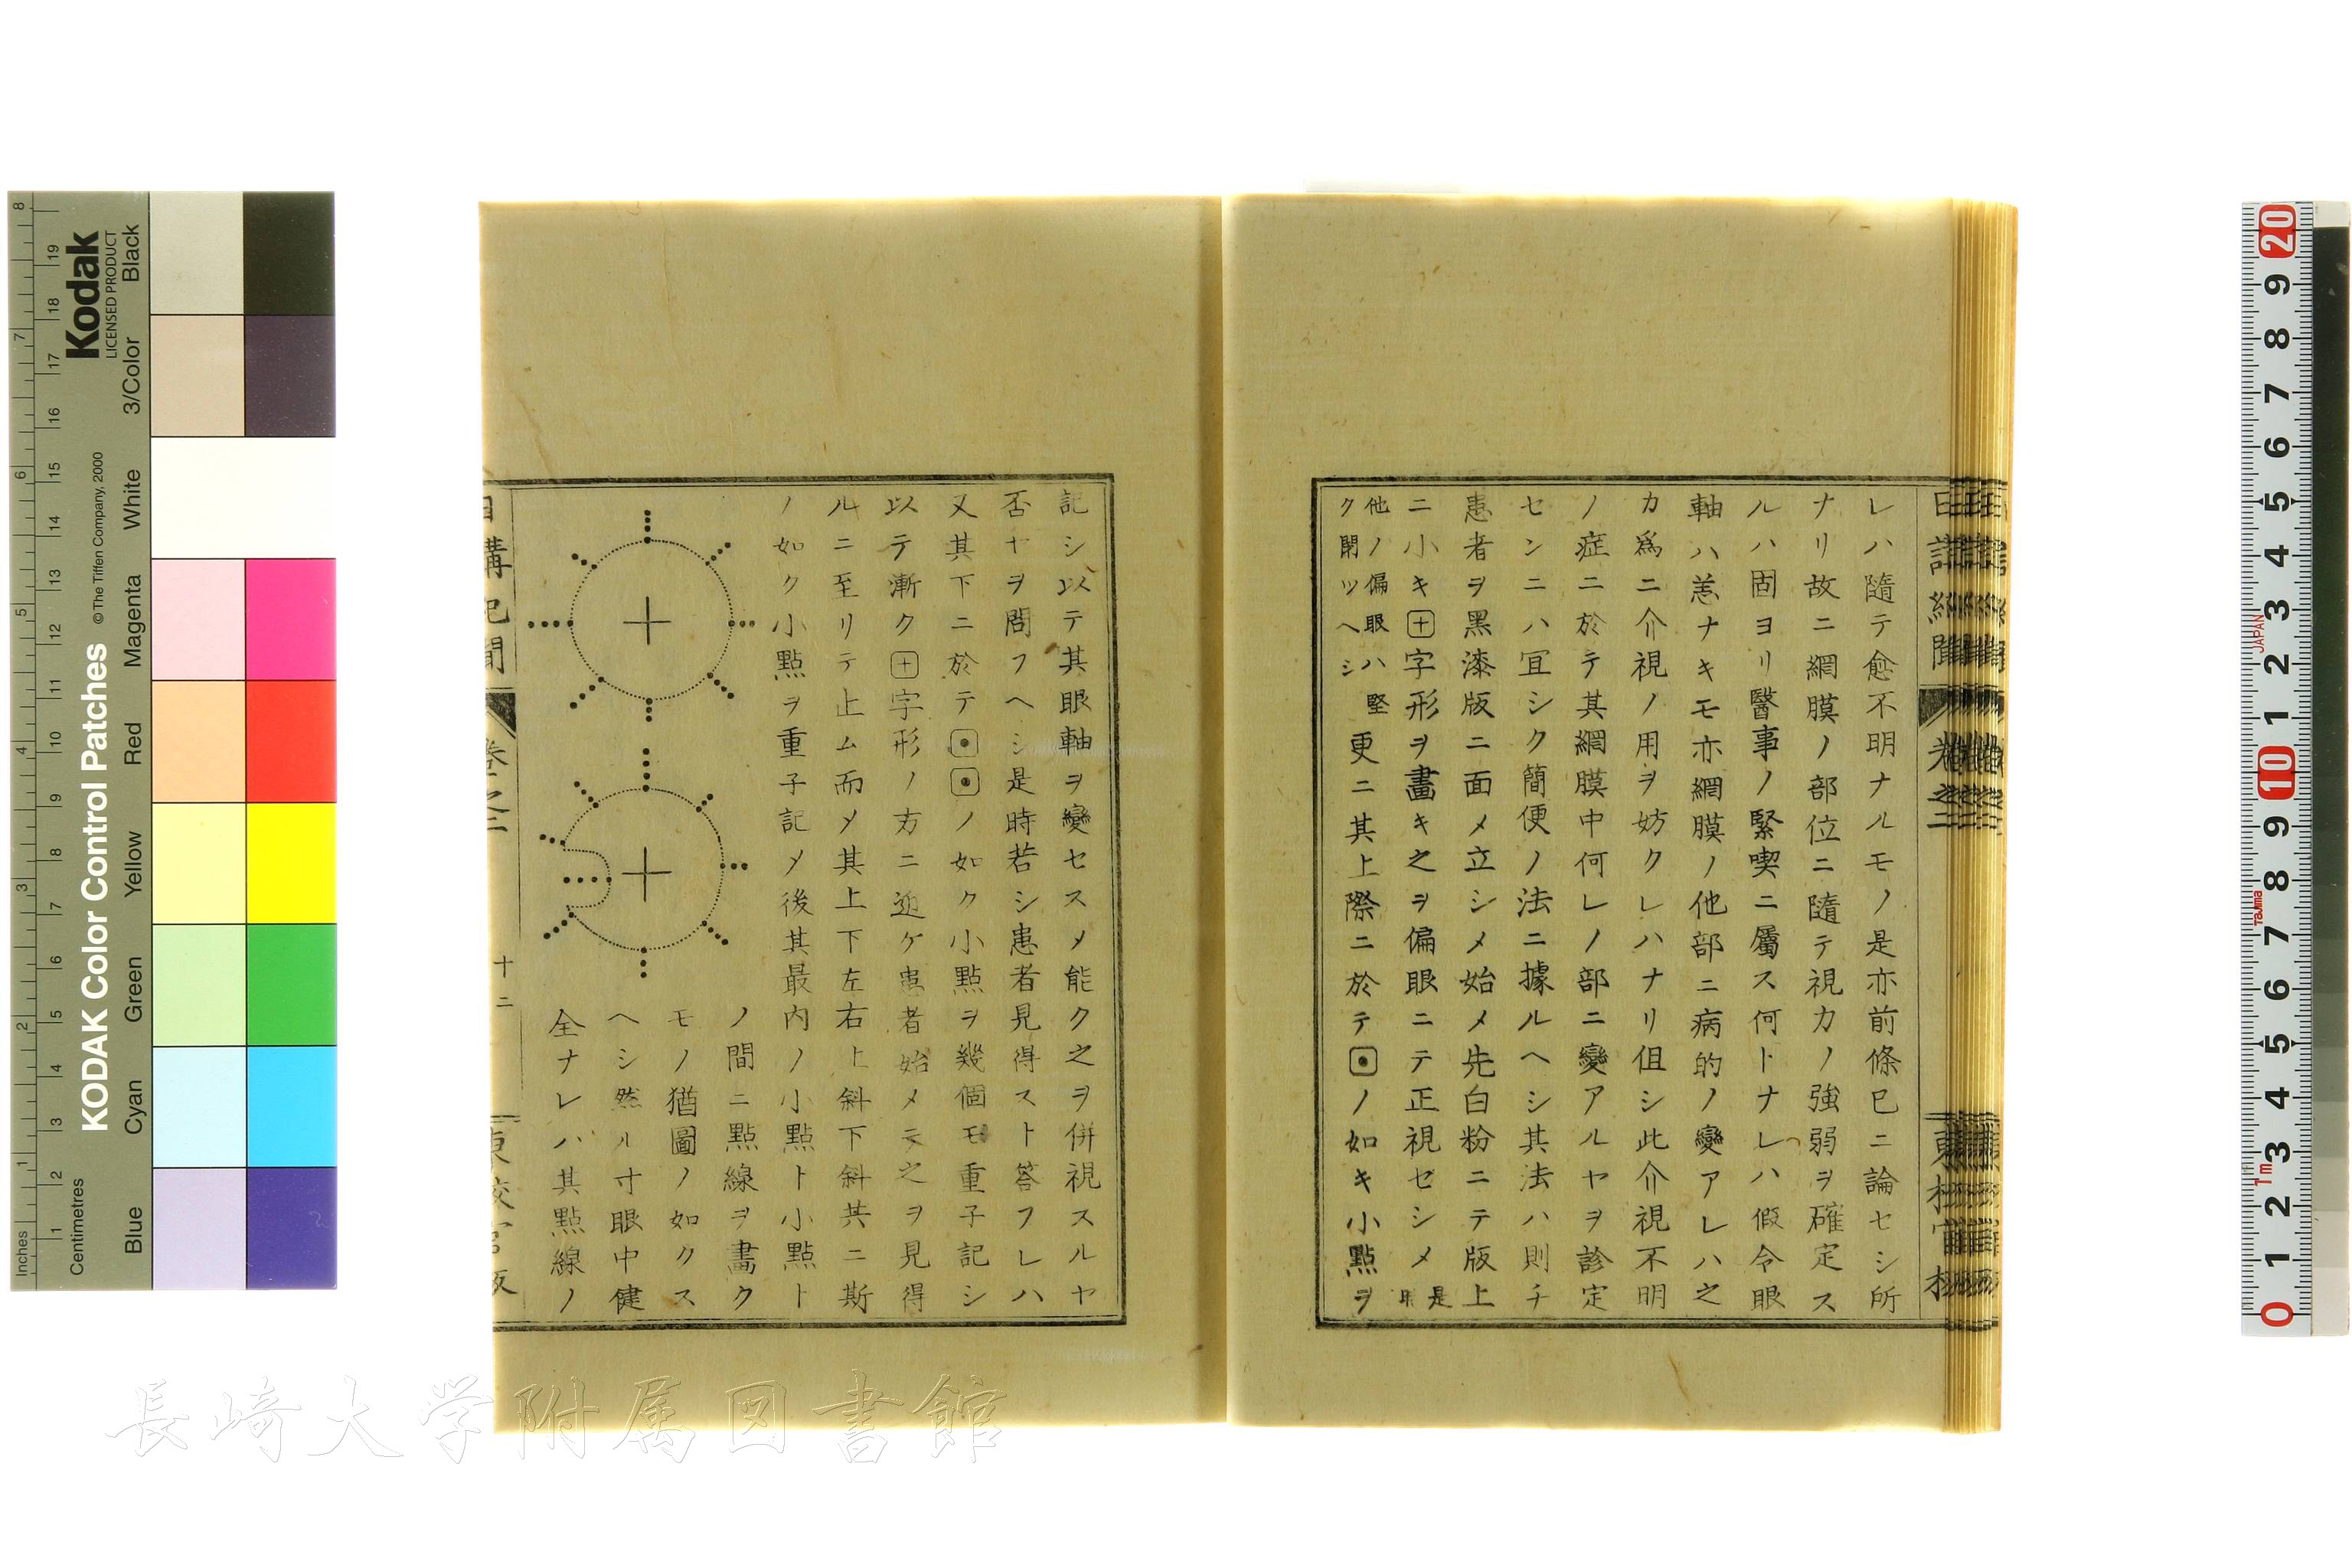 レハ隨テ愈不明ナルモノ是亦前條已ニ論セシ所
ナリ故ニ網膜ノ部位ニ隨テ視力ノ強弱ヲ確定ス
ルハ固ヨリ醫事ノ緊喫ニ屬ス何トナレハ假令眼
軸ハ恙ナキモ亦網膜ノ他部ニ病的ノ變アレハ之
カ爲ニ介視ノ用ヲ妨クレハナリ伹シ此介視不明
ノ症ニ於テ其網膜中何レノ部ニ變アルヤヲ診定
センニハ冝シク簡便ノ法ニ據ルヘシ其法ハ則チ
患者ヲ黑漆版ニ面メ立シメ始メ先白粉ニテ版上
ニ小キ十字形ヲ畫キ之ヲ偏眼ニテ正視セシメ 是時
他ノ偏眼ハ堅
ク閉ツヘシ
更ニ其上際ニ於テ・ノ如キ小點ヲ
記シ以テ其眼軸ヲ變セスメ能ク之ヲ併視スルヤ
否ヤヲ問フヘシ是時若シ患者見得スト答フレハ
又其下ニ於テ・・ノ如ク小點ヲ幾個モ重子記シ
以テ漸ク十字形ノ方ニ近ケ患者始メテ之ヲ見得
ルニ至リテ止ム而メ其上下左右上斜下斜共ニ斯
ノ如ク小點ヲ重子記メ後其最内ノ小點ト小點ト
ノ間ニ點線ヲ畫ク
モノ猶圖ノ如クス
ヘシ然ル寸眼中健
全ナレハ其點線ノ
日講記聞
卷之二
十二
東校官版
Kodak
LICENSED PRODUCT
KODAK Color Control Patches
© The Tiffen Company, 2000
Inches
Centimetres
Blue
Cyan
Green
Yellow
Red
Magenta
White
3/Color
Black
1 2 3 4 5 6 7 8
1 2 3 4 5 6 7 8 9 10 11 12 13 14 15 16 17 18 19
20 9 8 7 6 5 4 3 2 1 10 9 8 7 6 5 4 3 2 1 0
JAPAN
Tajima
1m
長崎大学附属図書館